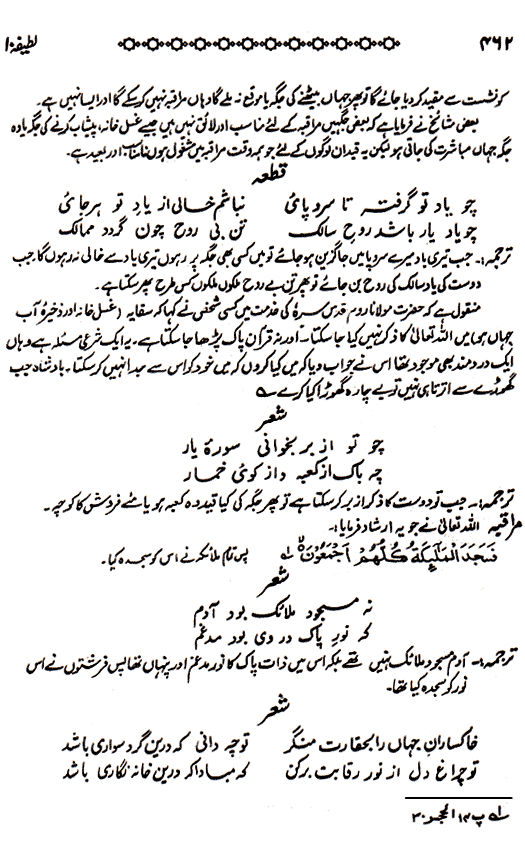 ۴۶۲ لطیفہ ۱۰
کو نشست سے مقید کر دیا جائے گا تو پھر جہاں بیٹھنے کی جگہ یا موقع نہ ملے گا وہاں مراقبہ نہیں کر سکے گا اور ایسا نہیں ہے۔
بعض مشائخ نے فرمایا ہے کہ بعض جگہیں مراقبہ کے لئے مناسب اور لائق نہیں ہیں جیسے غسل خانہ، پیشاب کرنے کی جگہ یا وہ
جگہ جہاں مباشرت کی جاتی ہو لیکن یہ قید ان لوگوں کے لئے جو ہمہ وقت مراقبہ میں مشغول ہوں نامناسب اور بعید ہے۔
قطعہ
چو یاد تو گرفتہ تا سر و پائ نباشم خالی از یادِ تو ہر جائ
چو یاد یار باشد روح سالک تن بی روح چون گردد ممالک
ترجمہ:۔ جب تیری یاد میرے سر و پا میں جاگزین ہو جائے تو میں کسی بھی جگہ پر رہوں تیری یاد سے خالی نہ رہوں گا۔ جب
دوست کی یاد سالک کی روح بن جائے تو پھر تن بے روح ملکوں ملکوں کس طرح پھر سکتا ہے۔
منقول ہے کہ حضرت مولانا روم قدس سرہٗ کی خدمت میں کسی شخص نے کہا کہ سقایہ (غسل خانہ اور ذخیرۂ آب
جہاں ہو) میں اللہ تعالیٰ کا ذکر نہیں کیا جا سکتا۔ اور نہ قرآن پاک پڑھا جا سکتا ہے۔ یہ ایک شرعی مسئلہ ہے وہاں
ایک درد مند بھی موجود تھا اس نے جواب دیا کہ میں کیا کروں کہ میں خود کو اس سے جدا نہیں کر سکتا۔ بادشاہ جب
گھوڑے سے اترتا ہی نہیں تو بے چارہ گھوڑا کیا کرے ؎
شعر
چو تو از بر بخوانی سورۂ یار
چہ باک از کعبہ و از کوئی خمار
ترجمہ:۔ جب تو دوست کا ذکر از بر کر سکتا ہے تو پھر جگہ کی کیا قید وہ کعبہ ہو یا مئے فروش کا کوچہ۔
مراقبہ اللہ تعالیٰ نے جو یہ ارشاد فرمایا:۔
فَسَجَدَ الْمَلٰٓئِكَةُ كُلُّهُمْ اَجْمَعُوْنَ ۙ ۱؎ پس تمام ملائکہ نے اس کو سجدہ کیا۔
شعر
نہ مسجود ملائک بود آدم
کہ نورِ پاک در وی بود مدغم
ترجمہ:۔ آدم مسجود ملائک نہیں تھے بلکہ اس میں ذات پاک کا نور مدغم اور پنہاں تھا پس فرشتوں نے اس
نور کو سجدہ کیا تھا۔
شعر
خاکساران جہاں را بحقارت منگر تو چہ دانی کہ درین گرد سواری باشد
تو چراغ دل از نور رقابت برکن کہ مبادا کہ درین خانہ نگاری باشد
۱؎ پ ۱۴ الحجر ۳۰